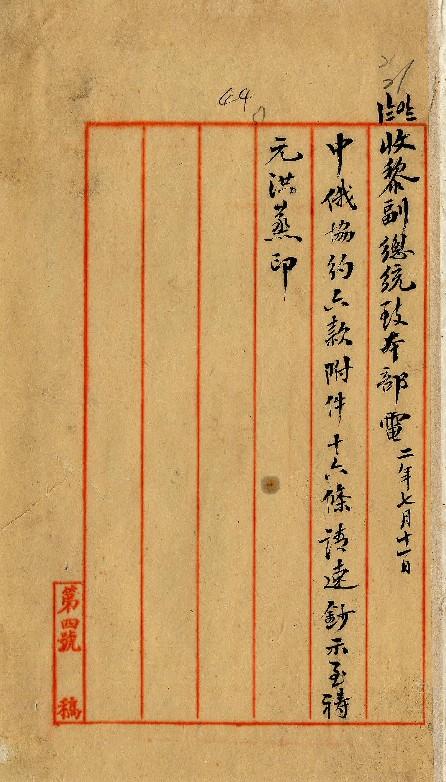 收黎副總統致本部電 二年七月十一日
中俄協約六款附件十六條請速鈔示至禱
元洪蒸印
44
第四號 稿